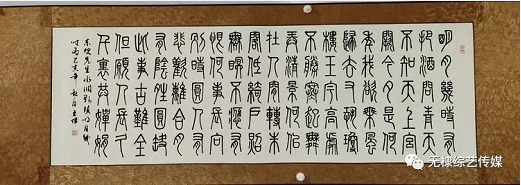 明月幾時有
把酒問青天
不知天上宮
闕今夕是何
年我欲乘風
歸去又恐瓊
樓玉宇高處
不勝寒起舞
弄清影何似
在人間轉朱
閣低綺戶照
無眠不應有
恨何事長向
別時圓人有
悲歡離合月
有陰晴圓缺
此事古難全
但願人長久
千里共嬋娟
東坡先生水調歌頭明月幾
時有己亥年
无棣综艺传媒